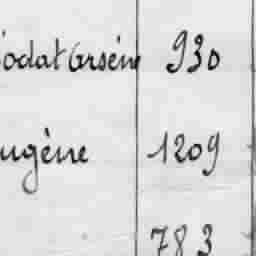 odat Arsène 930
ugène 1209
783